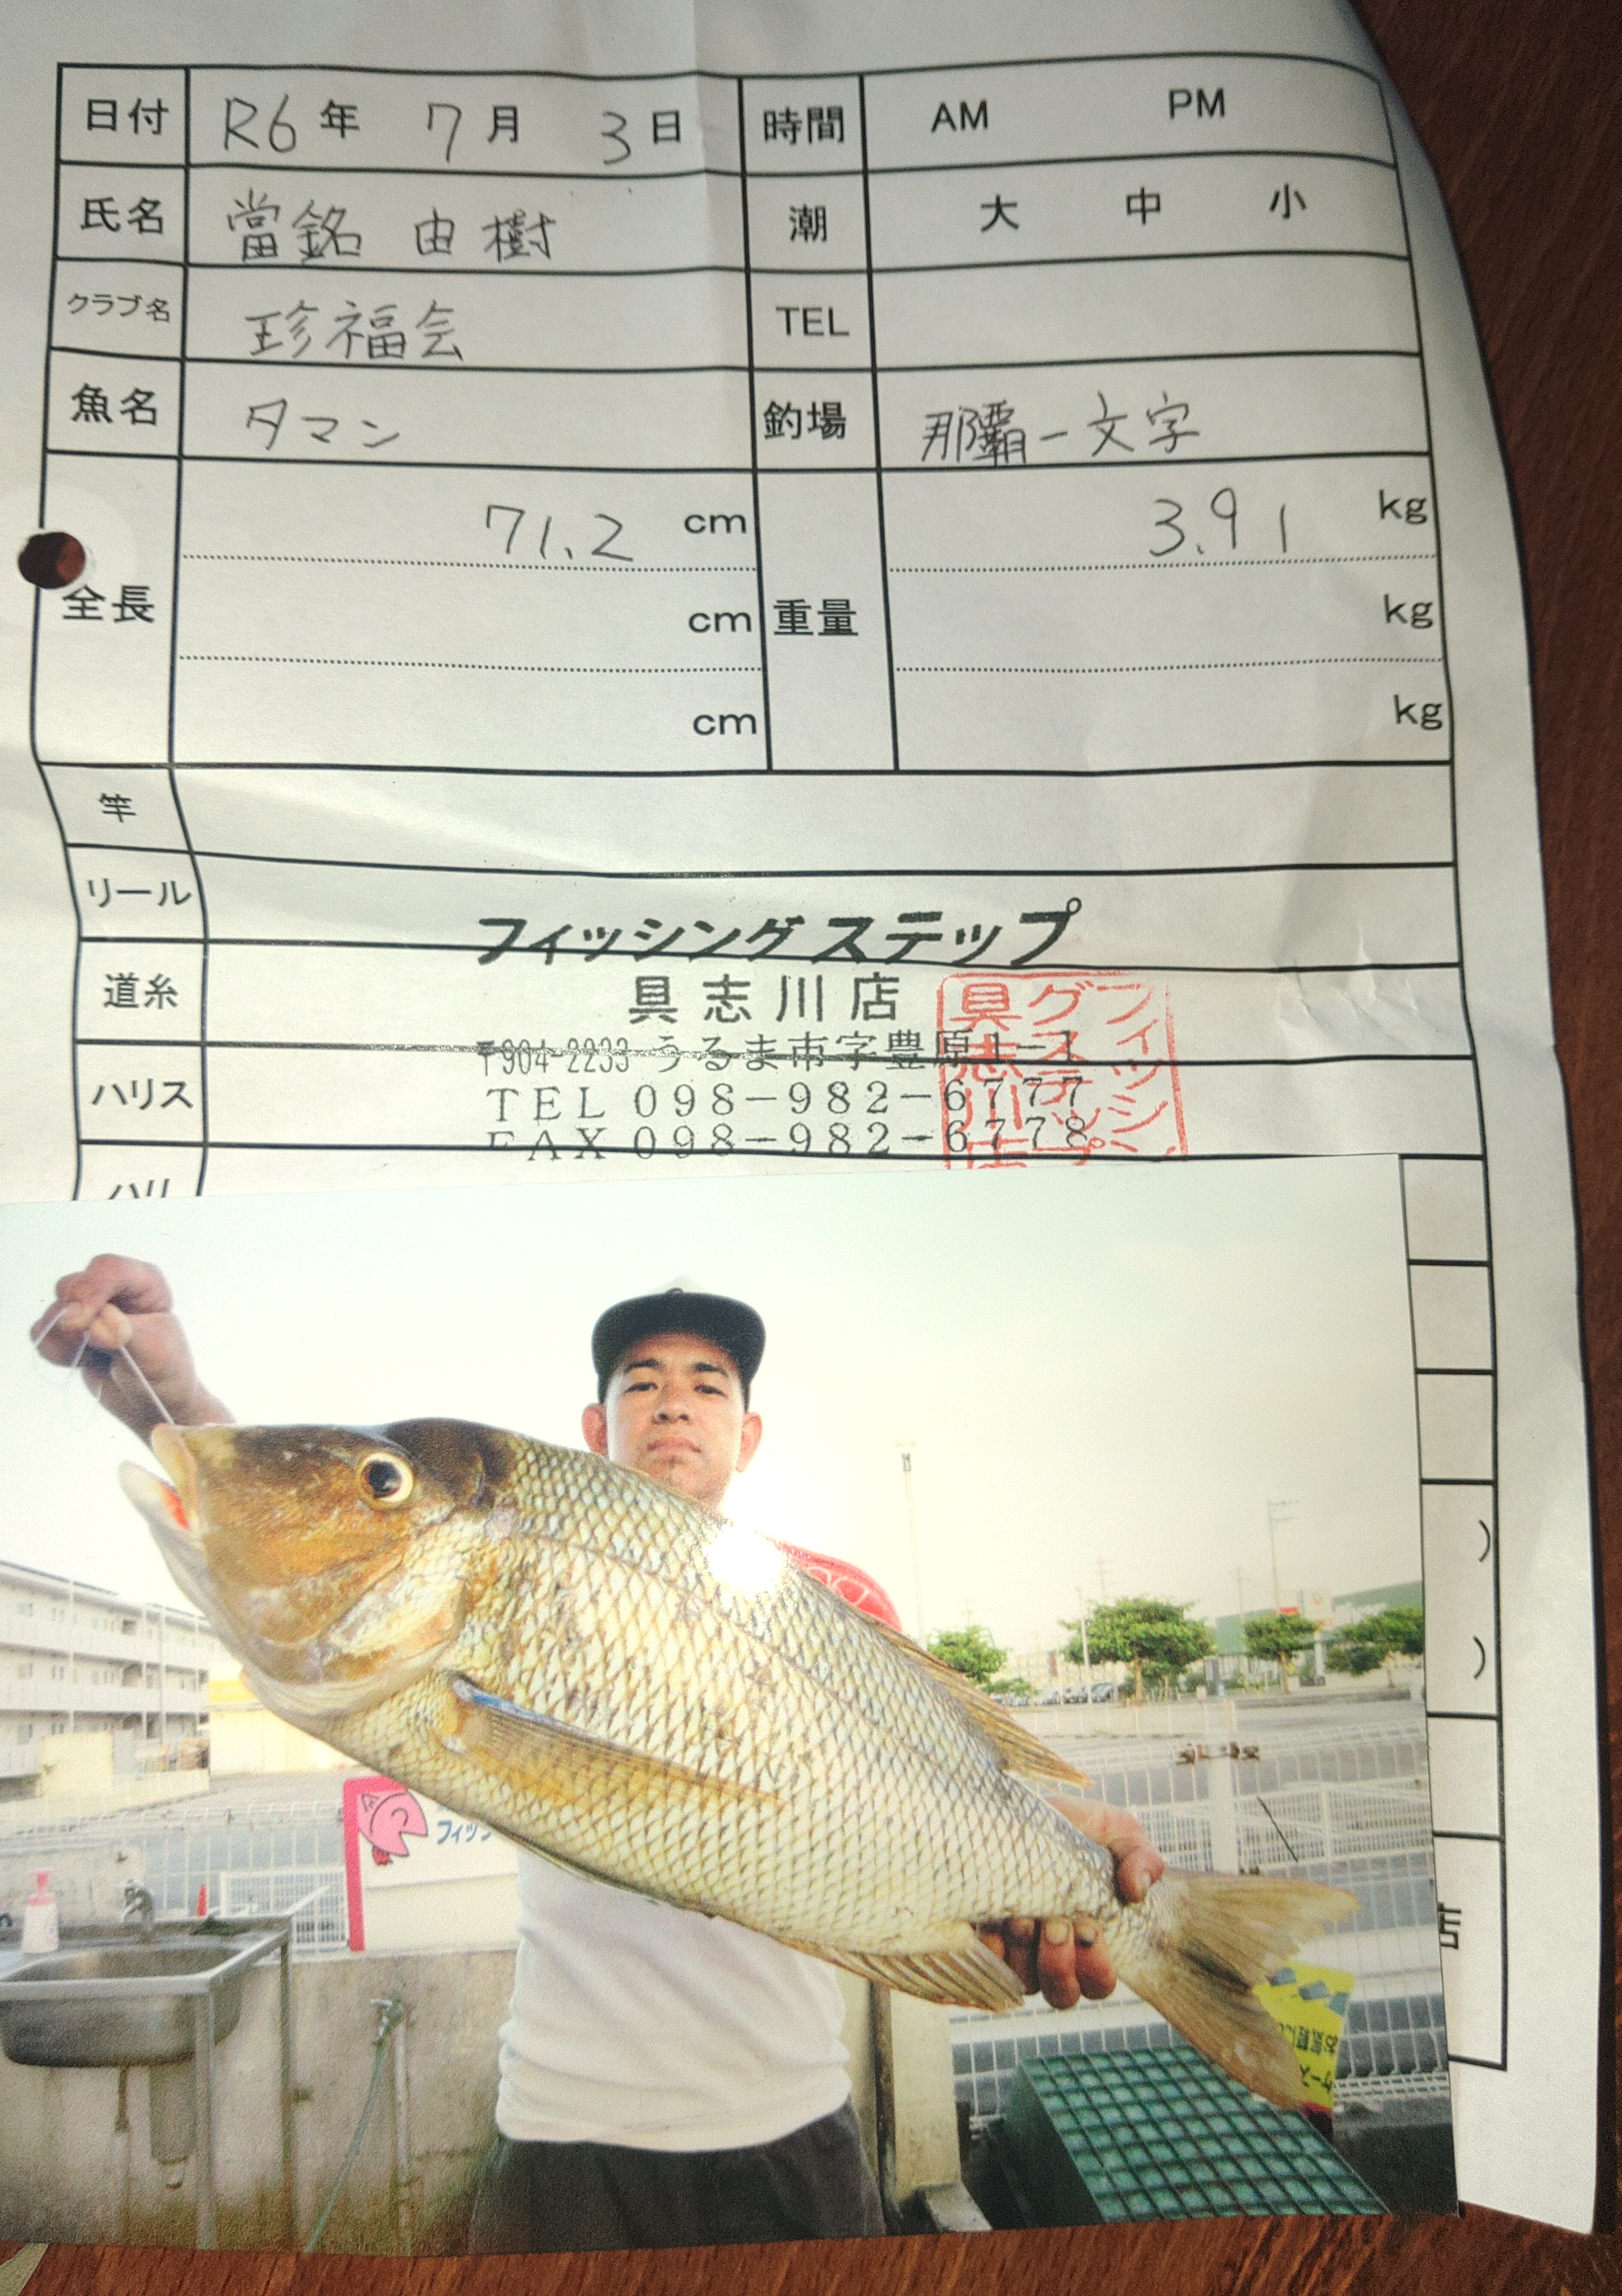 日付 R6年 7月 3日 時間 AM PM
氏名 當銘 由樹 潮 大 中 小
クラブ名 珍福会 TEL
魚名 タマン 釣場 那覇一文字
全長 71.2 cm 重量 3.91 kg
cm kg
cm kg
竿
リール
フィッシングステップ
道糸
具志川店
〒904-2233 うるま市字豊原1-1
ハリス
TEL 098-982-6777
FAX 098-982-6778
フィッシン
グステップ
具志川店
ハリ
)
)
店
フィッ